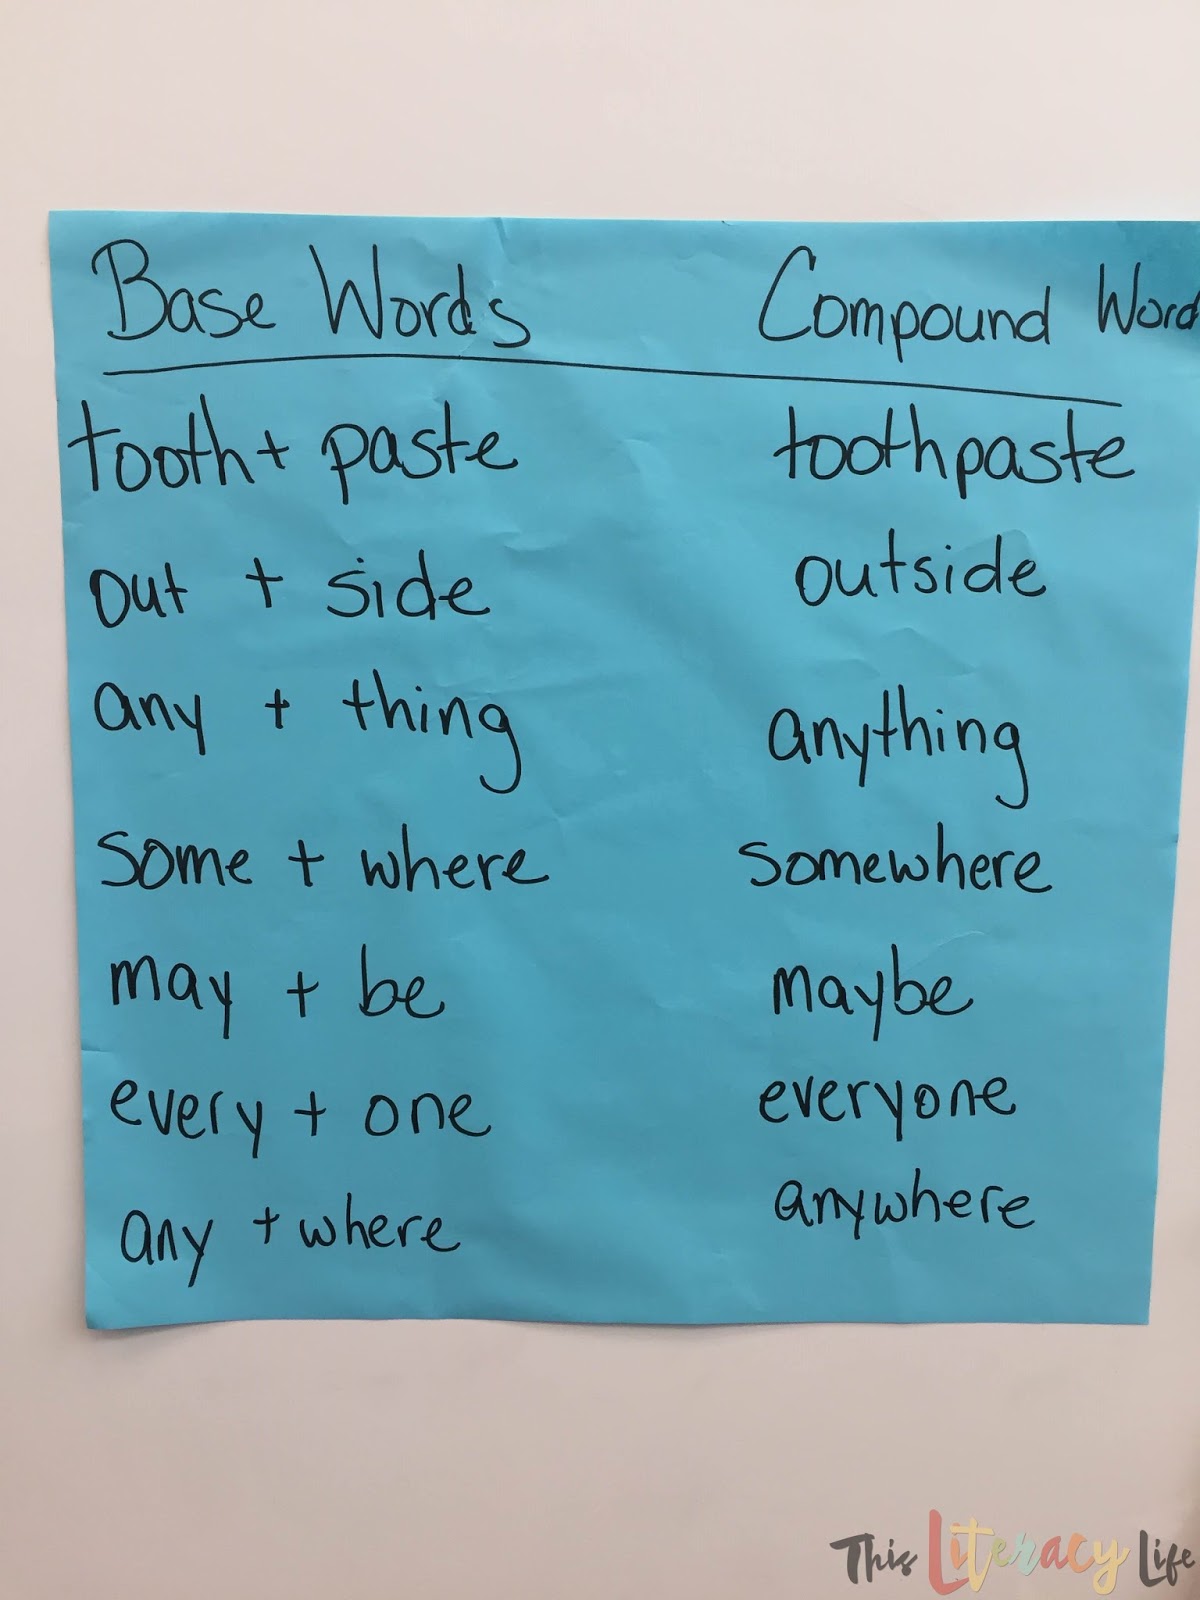 Base Words Compound Word
tooth + paste toothpaste
out + side outside
any + thing anything
some + where somewhere
may + be maybe
every + one everyone
any + where anywhere
This Literacy Life